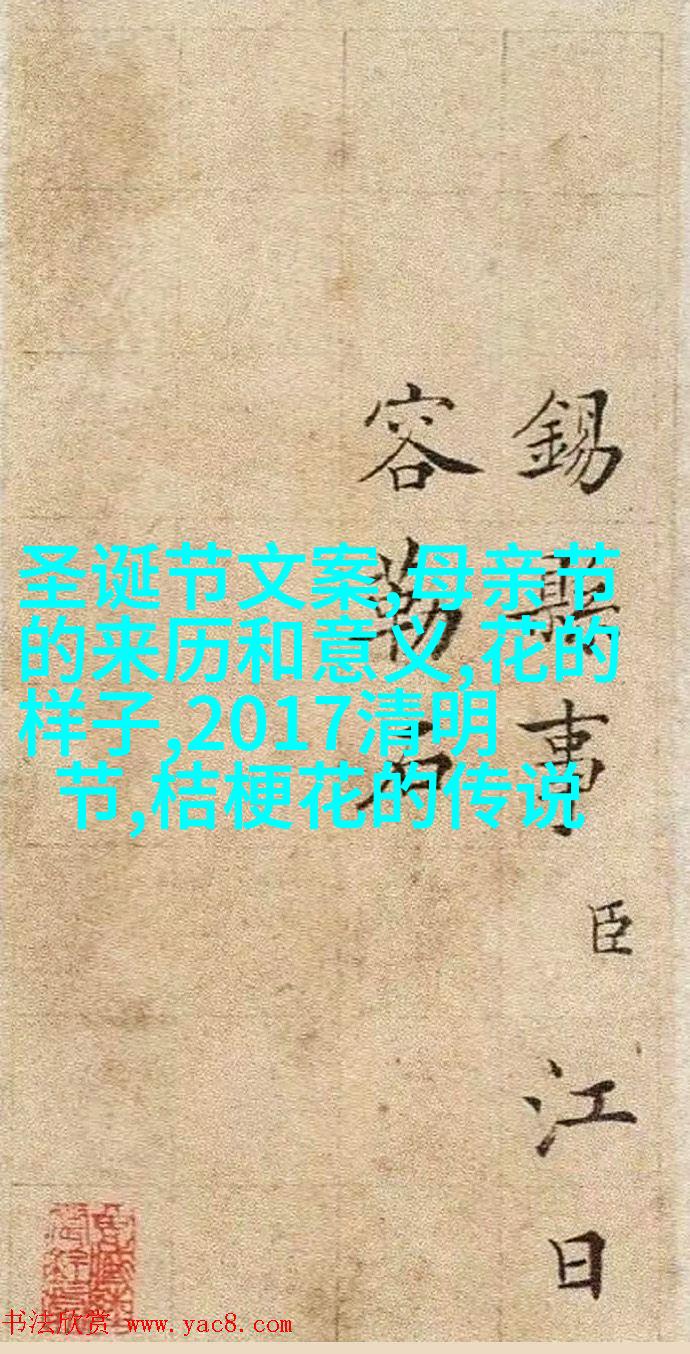 圣诞节文案,母亲节
的来历和意义,花的
样子,2017清明
节,桔梗花的传说
錫縣事臣江日
容勒石
书法欣赏 www.yac8.com